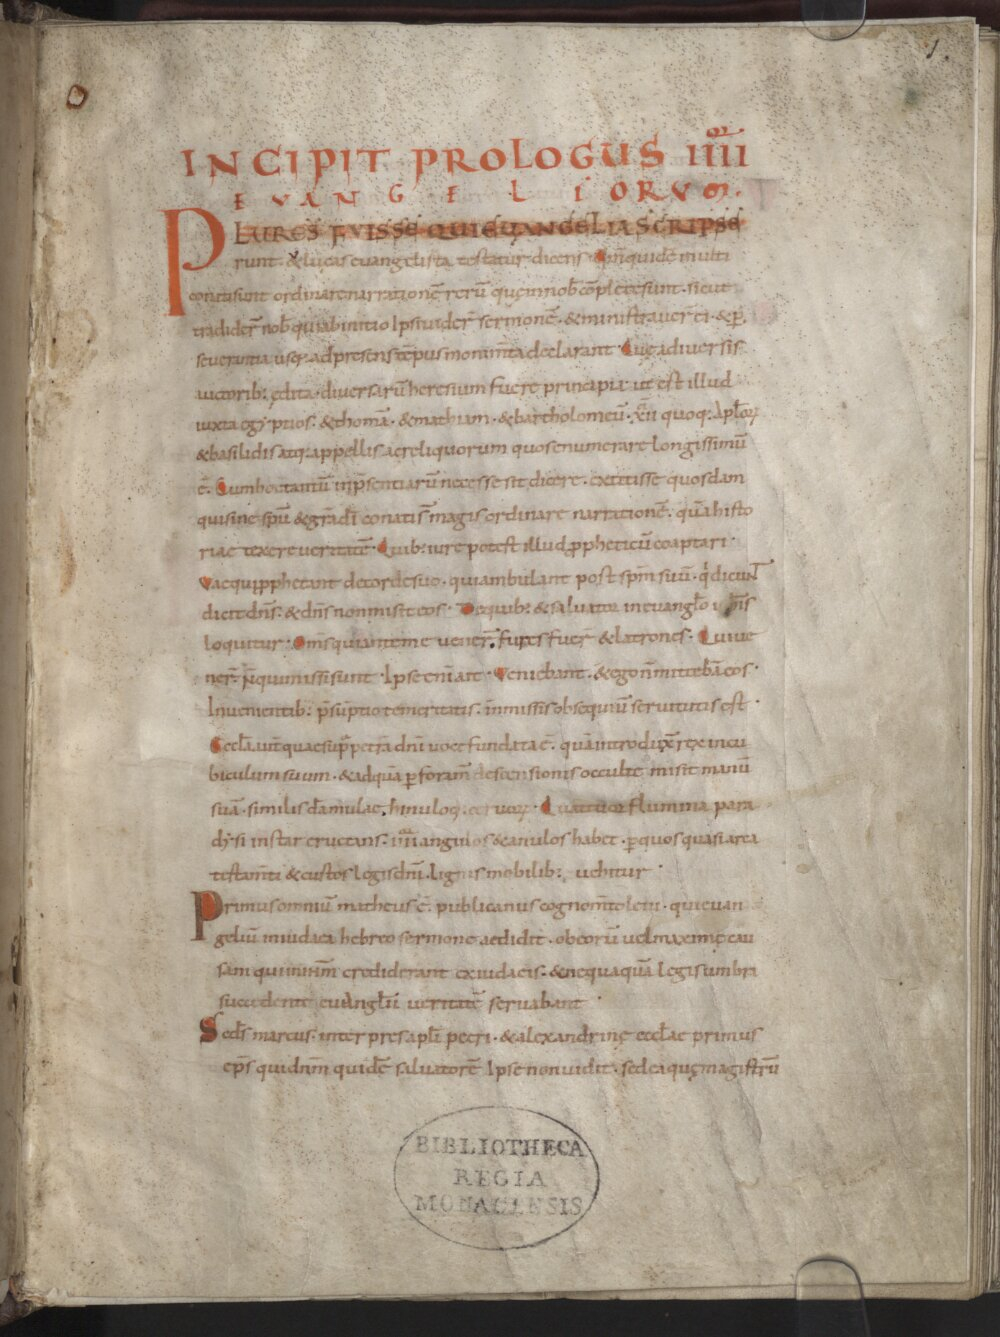 1.
INCIPIT PROLOGUS IIII
EVANGELIORVM.
PLURES FVISSE QUI EUANGELIA SCRIPSE
runt · & lucas euangelista testatur dicens · Qm̄ quidē multi
conati sunt ordinare narrationē rerū quę in nob̄ cōpletę sunt · sicut
tradider̄ nob̄ qui ab initio ipsi uider̄ sermonē · & ministrauer̄ ei · & p̄
seuerantia usq; ad presens tēpus monim̄ta declarant · Quę a diuersis
auctorib; ędita · diuersarū heresium fuere principia · ut est illud
iuxta egyptios · & thomā · & mathiam · & bartholomeū · XII quoq; apl̄oꝝ
& basilidis atq; appellis ac reliquorum quos enumerare longissimū
ē · Cum hoc tantū in p̄sentiarū necesse sit dicere · extitisse quosdam
qui sine sp̄u & gr̄a dī conati s̄ magis ordinare narrationē · quā histo
riae texere ueritatē · Quib; iure potest illud ppheticū coaptari ·
Vae qui pphetant de corde suo · qui ambulant post sp̄m suū · qi dicunt
dicit dn̄s · & dn̄s non misit eos · De quib; & saluator in euangl̄o
loquitur · Om̄s qui ante me uener̄ · fures fuer̄ & latrones · Qui ue
ner̄ n̄ qui missi sunt · Ipse eni ait · Veniebant · & ego n̄ mittebā eos ·
In uenientib; p̄sūptio temeritatis · in missis obsequiū seruitutis est ·
Eccl̄a aut̄ quae sup̄ petrā dn̄i uoce fundata ē · quā introdux̄ rex in cu
biculum suum · & ad quā p foramē descensionis occultę misit manū
suā · similis dāmulae, hinuloq; ceruoꝝ · Quattuor flumina para
dysi instar eructans · IIII angulos & anulos habet · p quos quasi arca
testam̄ti & custos legis dn̄i · lignis mobilib; uehitur ·
Primus omniū matheus ē · publicanus cognom̄to leui · qui euan
geliū in iudaea hebreo sermone aedidit · ob eorū uel maximę cau
sam qui in ih̄m crediderant ex iudaeis · & nequaquā legis umbra
succedente euangl̄ii ueritatē seruabant ·
Sedś marcus · interpres apl̄i petri · & alexandrinę eccl̄ae primus
ep̄s qui dn̄m quidē saluatorē ipse non uidit · sed ea quę magistrū
BIBLIOTHECA
REGIA
MONACENSIS